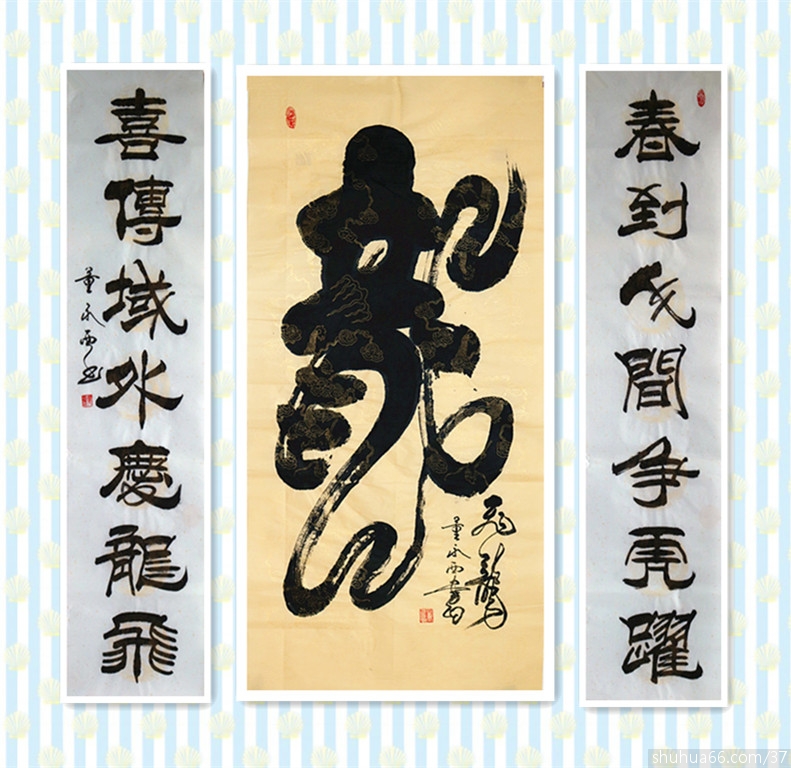 春到人間争虎躍
龍
飛龍
董永西書
喜傳域外慶龍飛
董永西书
shuhua66.com/37